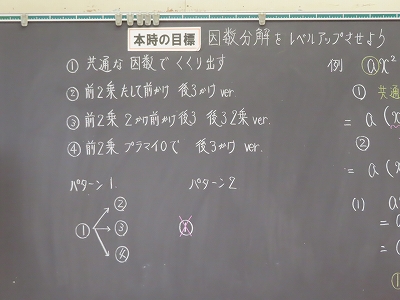 本時の目標 因数分解をレベルアップさせよう
① 共通な因数でくくり出す
② 前2乗 たして前かけ 後3かけ ver.
③ 前2乗 2かけ前かけ後3 後3 2乗 ver.
④ 前2乗 プラマイ0で 後3かけ ver.
パターン1.
パターン2
① ② ③ ④
①
例 ax²
① 共通
= a(x
②
= a(x
(1) a
= a
= (
①